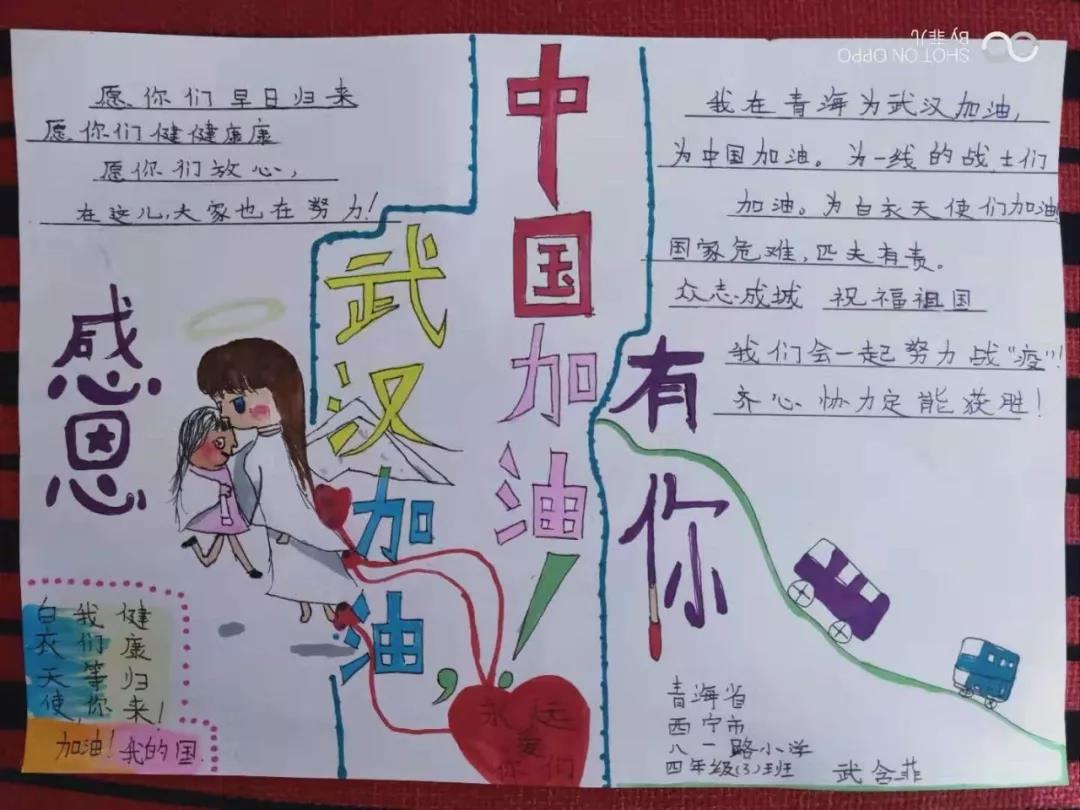 愿你们早日归来
愿你们健健康康
愿你们放心，
在这儿，大家也在努力！
感恩
武汉加油，
中国加油！
有你
我在青海为武汉加油，
为中国加油。为一线的战士们
加油。为白衣天使们加油！
国家危难，匹夫有责。
众志成城 祝福祖国
我们会一起努力战“疫”！
齐心协力定能获胜！
白衣天使，
我们等你
健康归来！
加油！我的国
永远
爱
你们
青海省
西宁市
八一路小学
四年级(3)班 武含菲
SHOT ON OPPO
BY 菲儿